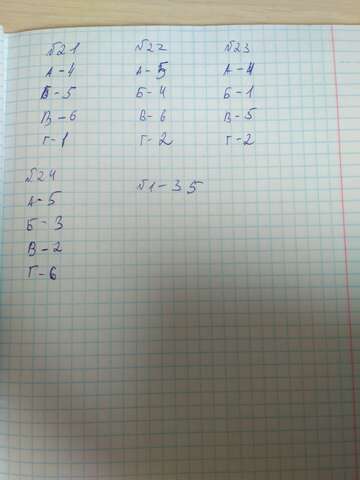 №21 №22 №23
А-4 А-5 А-4
Б-5 Б-4 Б-1
В-6 В-6 В-5
Г-1 Г-2 Г-2
№24
А-5 №1-35
Б-3
В-2
Г-6